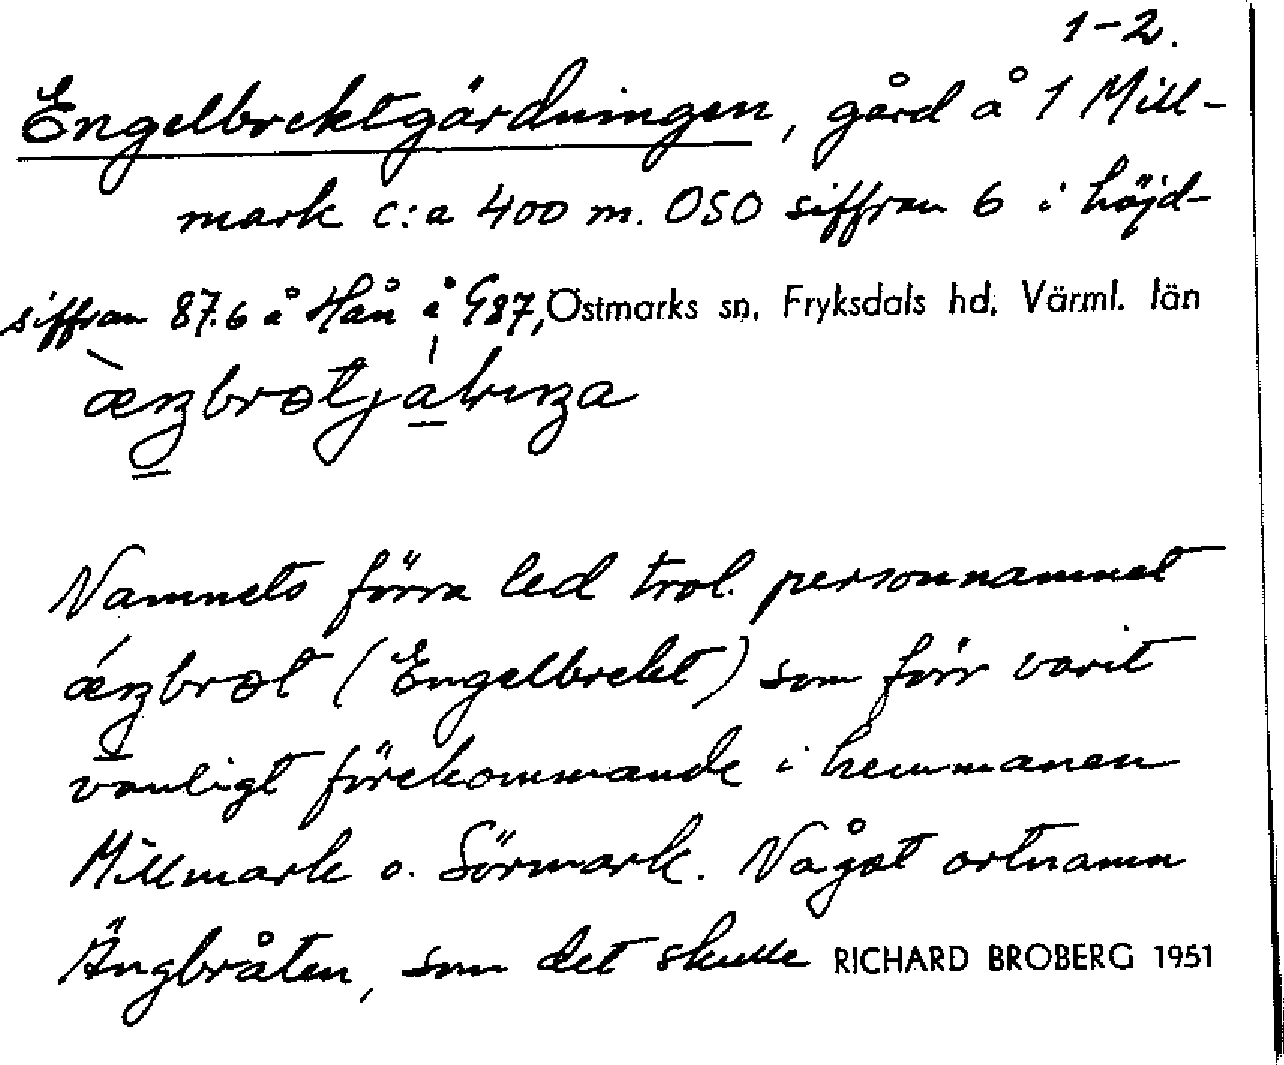 1-2.
Engelbrektgärdningen, gård å 1 Mill-
mark c:a 400 m. OSO siffran 6 i höjd-
siffran 87.6 å Hån å G87, Östmarks sn, Fryksdals hd, Värml. län
Namnets förra led trol. personnamnet
(Engelbrekt) som förr varit
vanligt förekommande i hemmanen
Millmark o. Sörmark. Något ortnamn
Ängbråten, som det skulle RICHARD BROBERG 1951